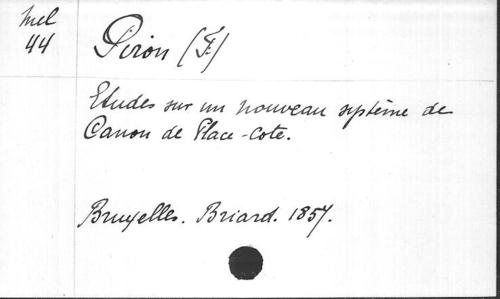 Mel
44
Piron (F)
Etudes sur un nouveau système de
Canon de Place-Cote.
Bruxelles. Briard. 1857.